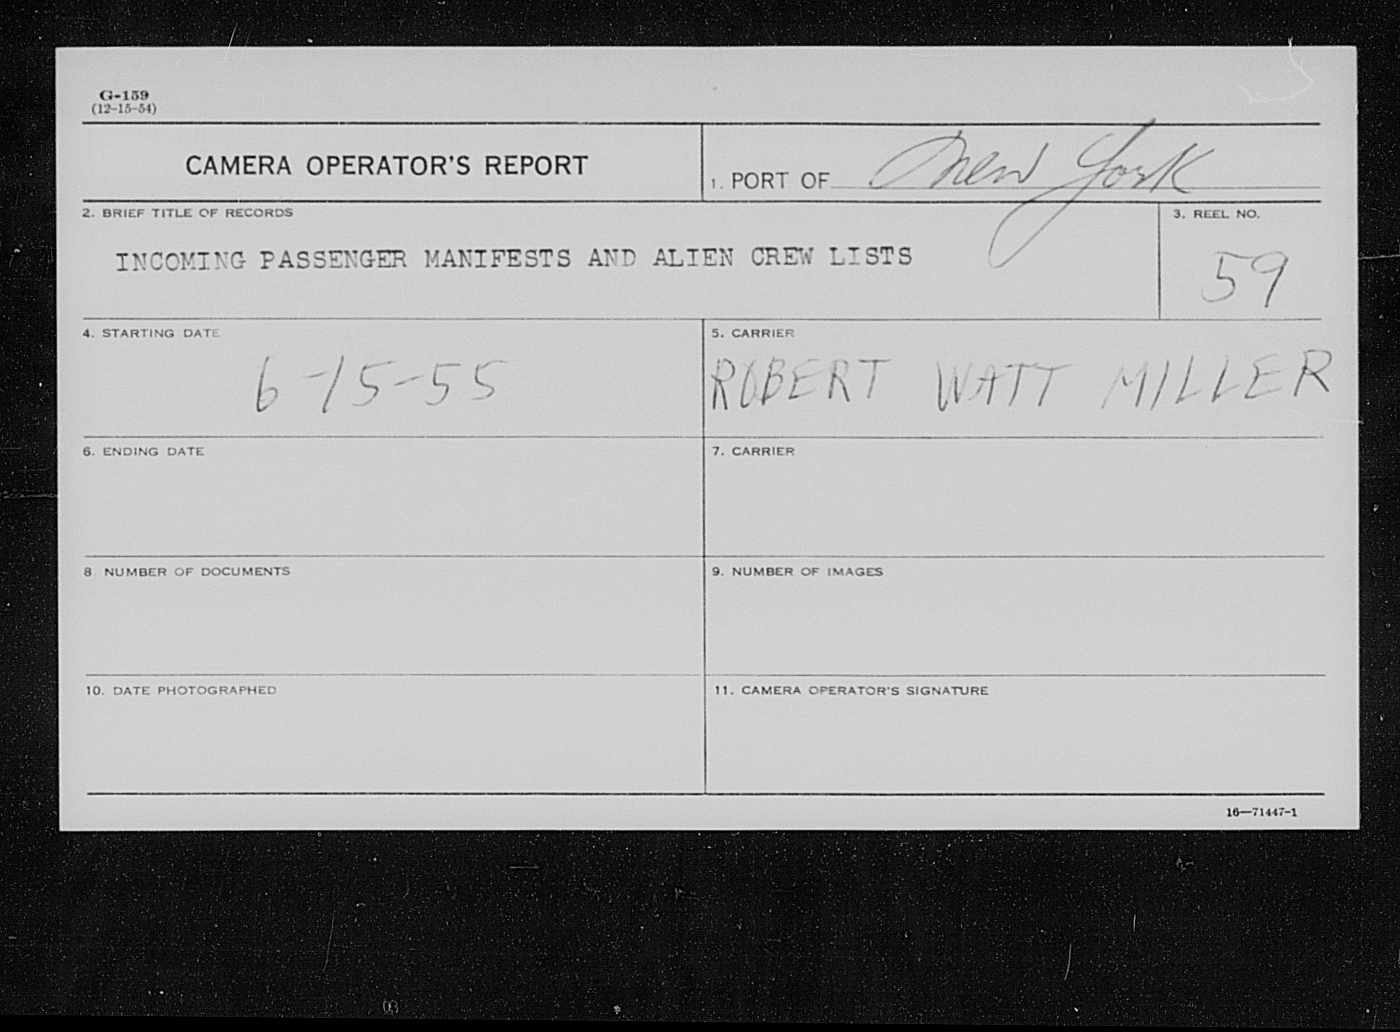 G-159
(12-15-54)
CAMERA OPERATOR'S REPORT
1. PORT OF New York
2. BRIEF TITLE OF RECORDS
INCOMING PASSENGER MANIFESTS AND ALIEN CREW LISTS
3. REEL NO.
59
4. STARTING DATE
6-15-55
5. CARRIER
ROBERT WATT MILLER
6. ENDING DATE
7. CARRIER
8 NUMBER OF DOCUMENTS
9. NUMBER OF IMAGES
10. DATE PHOTOGRAPHED
11. CAMERA OPERATOR'S SIGNATURE
16—71447-1